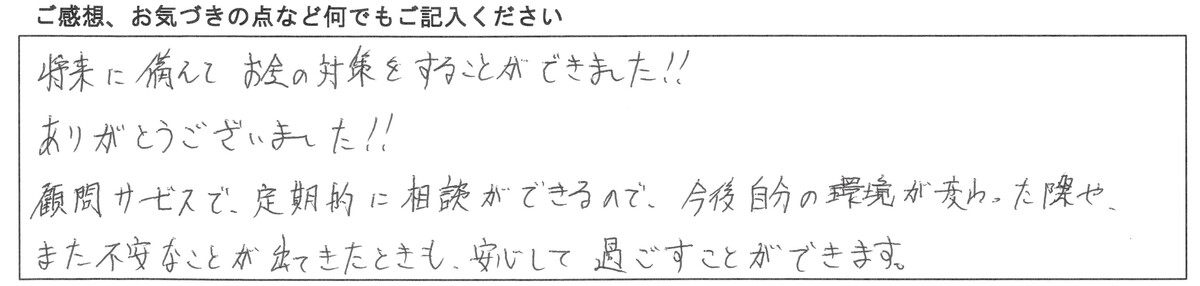 ご感想、お気づきの点など何でもご記入ください
将来に備えて お金の対策をすることができました!!
ありがとうございました!!
顧問サービスで、定期的に相談ができるので、今後自分の環境が変わった際や、
また不安なことが出てきたときも、安心して過ごすことができます。